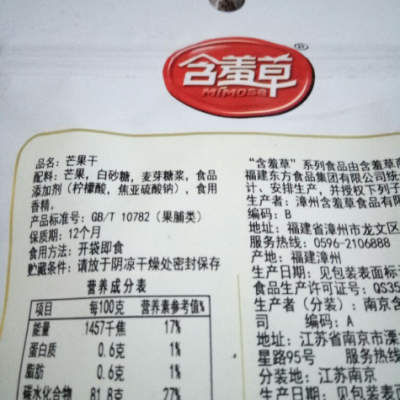 含羞草®
MIMOSA
品名：芒果干
配料：芒果，白砂糖，麦芽糖浆，食品
添加剂（柠檬酸，焦亚硫酸钠），食用
香精。
产品标准号：GB/T 10782（果脯类）
保质期：12个月
食用方法：开袋即食
贮藏条件：请放于阴凉干燥处密封保存
营养成分表
项目 每100克 营养素参考值%
能量 1457千焦 17%
蛋白质 0.6克 1%
脂肪 0.6克 1%
碳水化合物 81.8克 27%
“含羞草”系列食品由含羞草
福建东方食品集团有限公司统
计、安排生产，并授权下列子
生产者：漳州含羞草食品有限
编码：B
地址：福建省漳州市龙文区
服务热线：0596-2106888
产地：福建漳州
生产日期：见包装表面标
食品生产许可证号：QS35
生产者（分装）：南京含
司 编码：A
地址：江苏省南京市溧
星路95号 服务热
分装地：江苏南京
生产日期：见包装